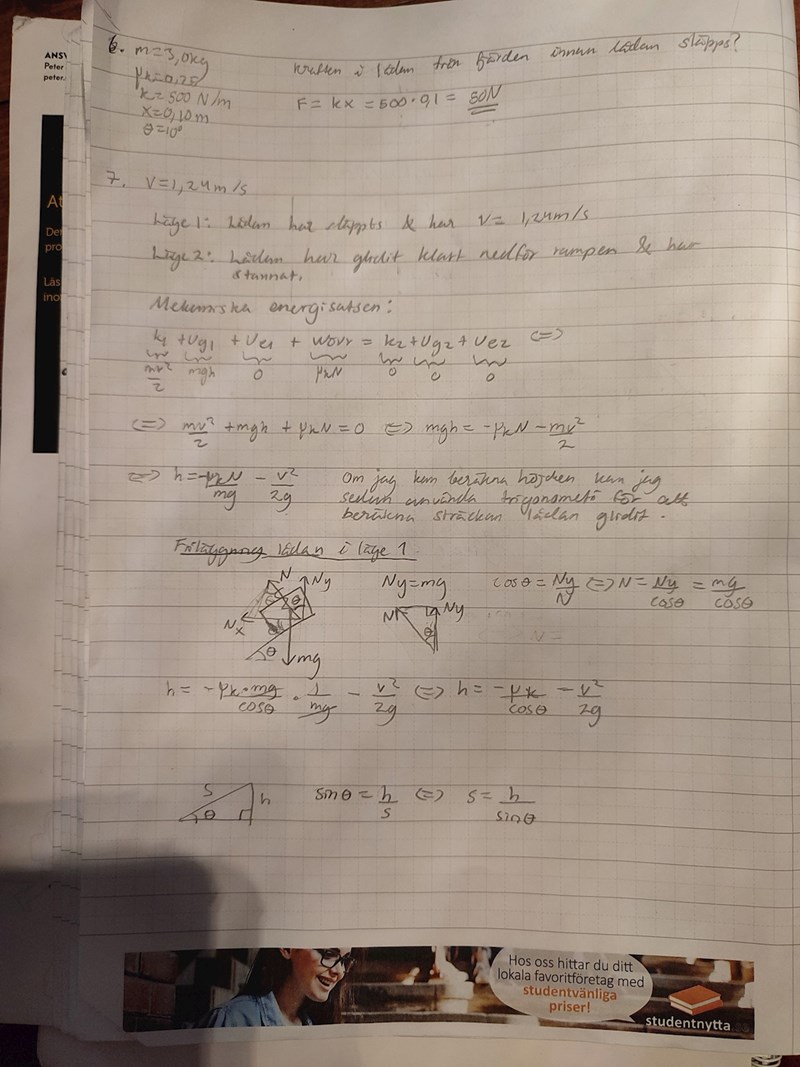 ANSV
Peter
peter.
At
Den
pro
Läs
ino
6. m=3,0kg
μk=0,25
k=500 N/m
x=0,10m
θ=10°
Kraften i lådan från fjärden innan lådan släpps?
F = kx = 500·0,1 = 50N
7. V=1,24m/s
Läge 1: Lådan har släppts & har V= 1,24m/s
Läge 2: Lådan har glidit klart nedför rampen & har
stannat.
Mekaniska energisatsen:
k1 + Ug1 + Ue1 + Wövr = k2 + Ug2 + Ue2 <=>
mv²/2 mgh 0 μkN 0 0 0
<=> mv²/2 + mgh + μkN = 0 <=> mgh = -μkN - mv²/2
=> h = -μkN/mg - v²/2g
Om jag kan beräkna höjden kan jag
sedan använda trigonometri för att
beräkna sträckan lådan glidit.
Friläggning lådan i läge 1.
N Ny
Nx
θ
θ
mg
Ny=mg
N Ny
θ
cosθ = Ny/N <=> N = Ny/cosθ = mg/cosθ
h = -μk·mg/cosθ · 1/mg - v²/2g <=> h = -μk/cosθ - v²/2g
s
h
θ
sinθ = h/s <=> s = h/sinθ
Hos oss hittar du ditt
lokala favoritföretag med
studentvänliga
priser!
studentnytta